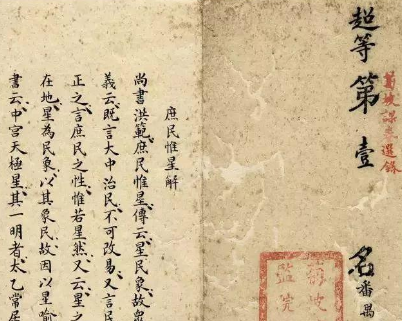 菊坡課卷選錄
超等第壹名番禺
菊坡
監院
庶民惟星解
尚書洪範庶民惟星傳云星民象故眾
義云既言大中治民不可改易又言民
正之言庶民之性惟若星然又云星之
在地星為民象以其象民故因以星喻
書云中宮天極星其一明者太乙常居